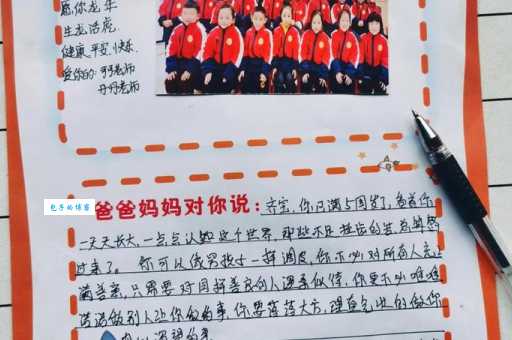 愿你龙年
生龙活虎
健康、平安、快乐
爱你的: 可可老师
丹丹老师
包子的博客
爸爸妈妈对你说: 宝, 你已满5周岁了, 看着你
一天天长大, 一点点认知这个世界, 那些不足挂齿的
过来了。 你可以像男孩子一样调皮, 你不必对所有人充
满善意, 只需要对同样善良的人温柔似待, 你更不必唯唯
诺诺做别人让你做的事, 你要落落大方, 理直气壮的做你